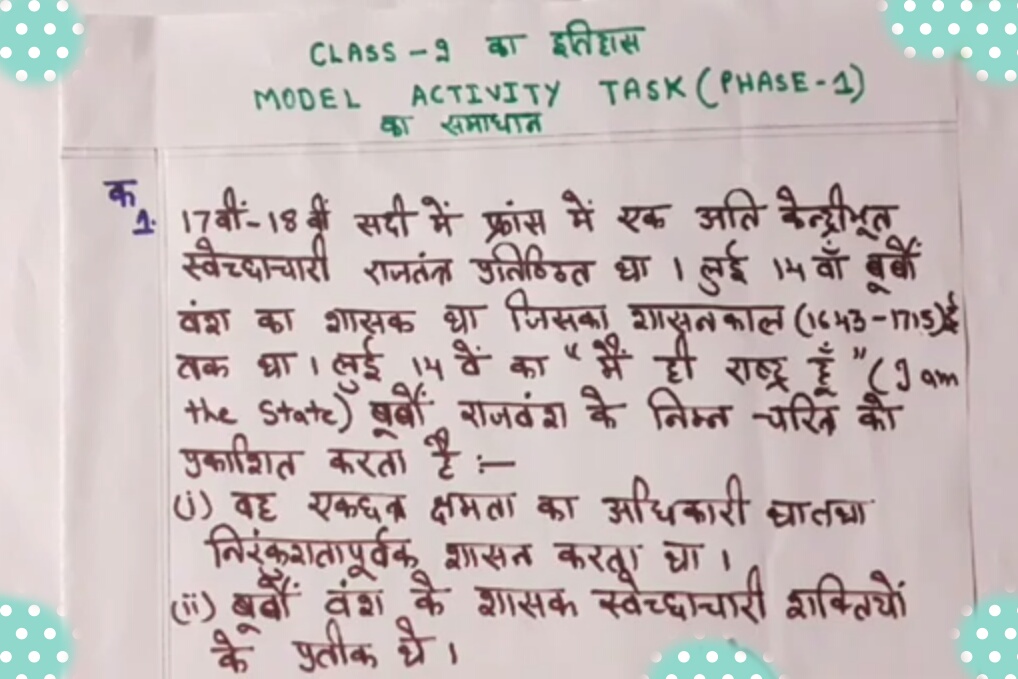 CLASS - 9 का इतिहास
MODEL ACTIVITY TASK (PHASE-1)
का समाधान
क
1. 17वीं-18वीं सदी में फ्रांस में एक अति केन्द्रीभूत
स्वेच्छाचारी राजतंत्र प्रतिष्ठित था । लुई 14 वाँ बूर्बों
वंश का शासक था जिसका शासनकाल (1643-1715)ई
तक था । लुई 14 वें का "मैं ही राष्ट्र हूँ" (I am
the State) बूर्बों राजवंश के निम्न चरित्र को
प्रकाशित करता है :—
(i) वह एकछत्र क्षमता का अधिकारी था तथा
निरंकुशतापूर्वक शासन करता था ।
(ii) बूर्बों वंश के शासक स्वेच्छाचारी शक्तियों
के प्रतीक थे ।